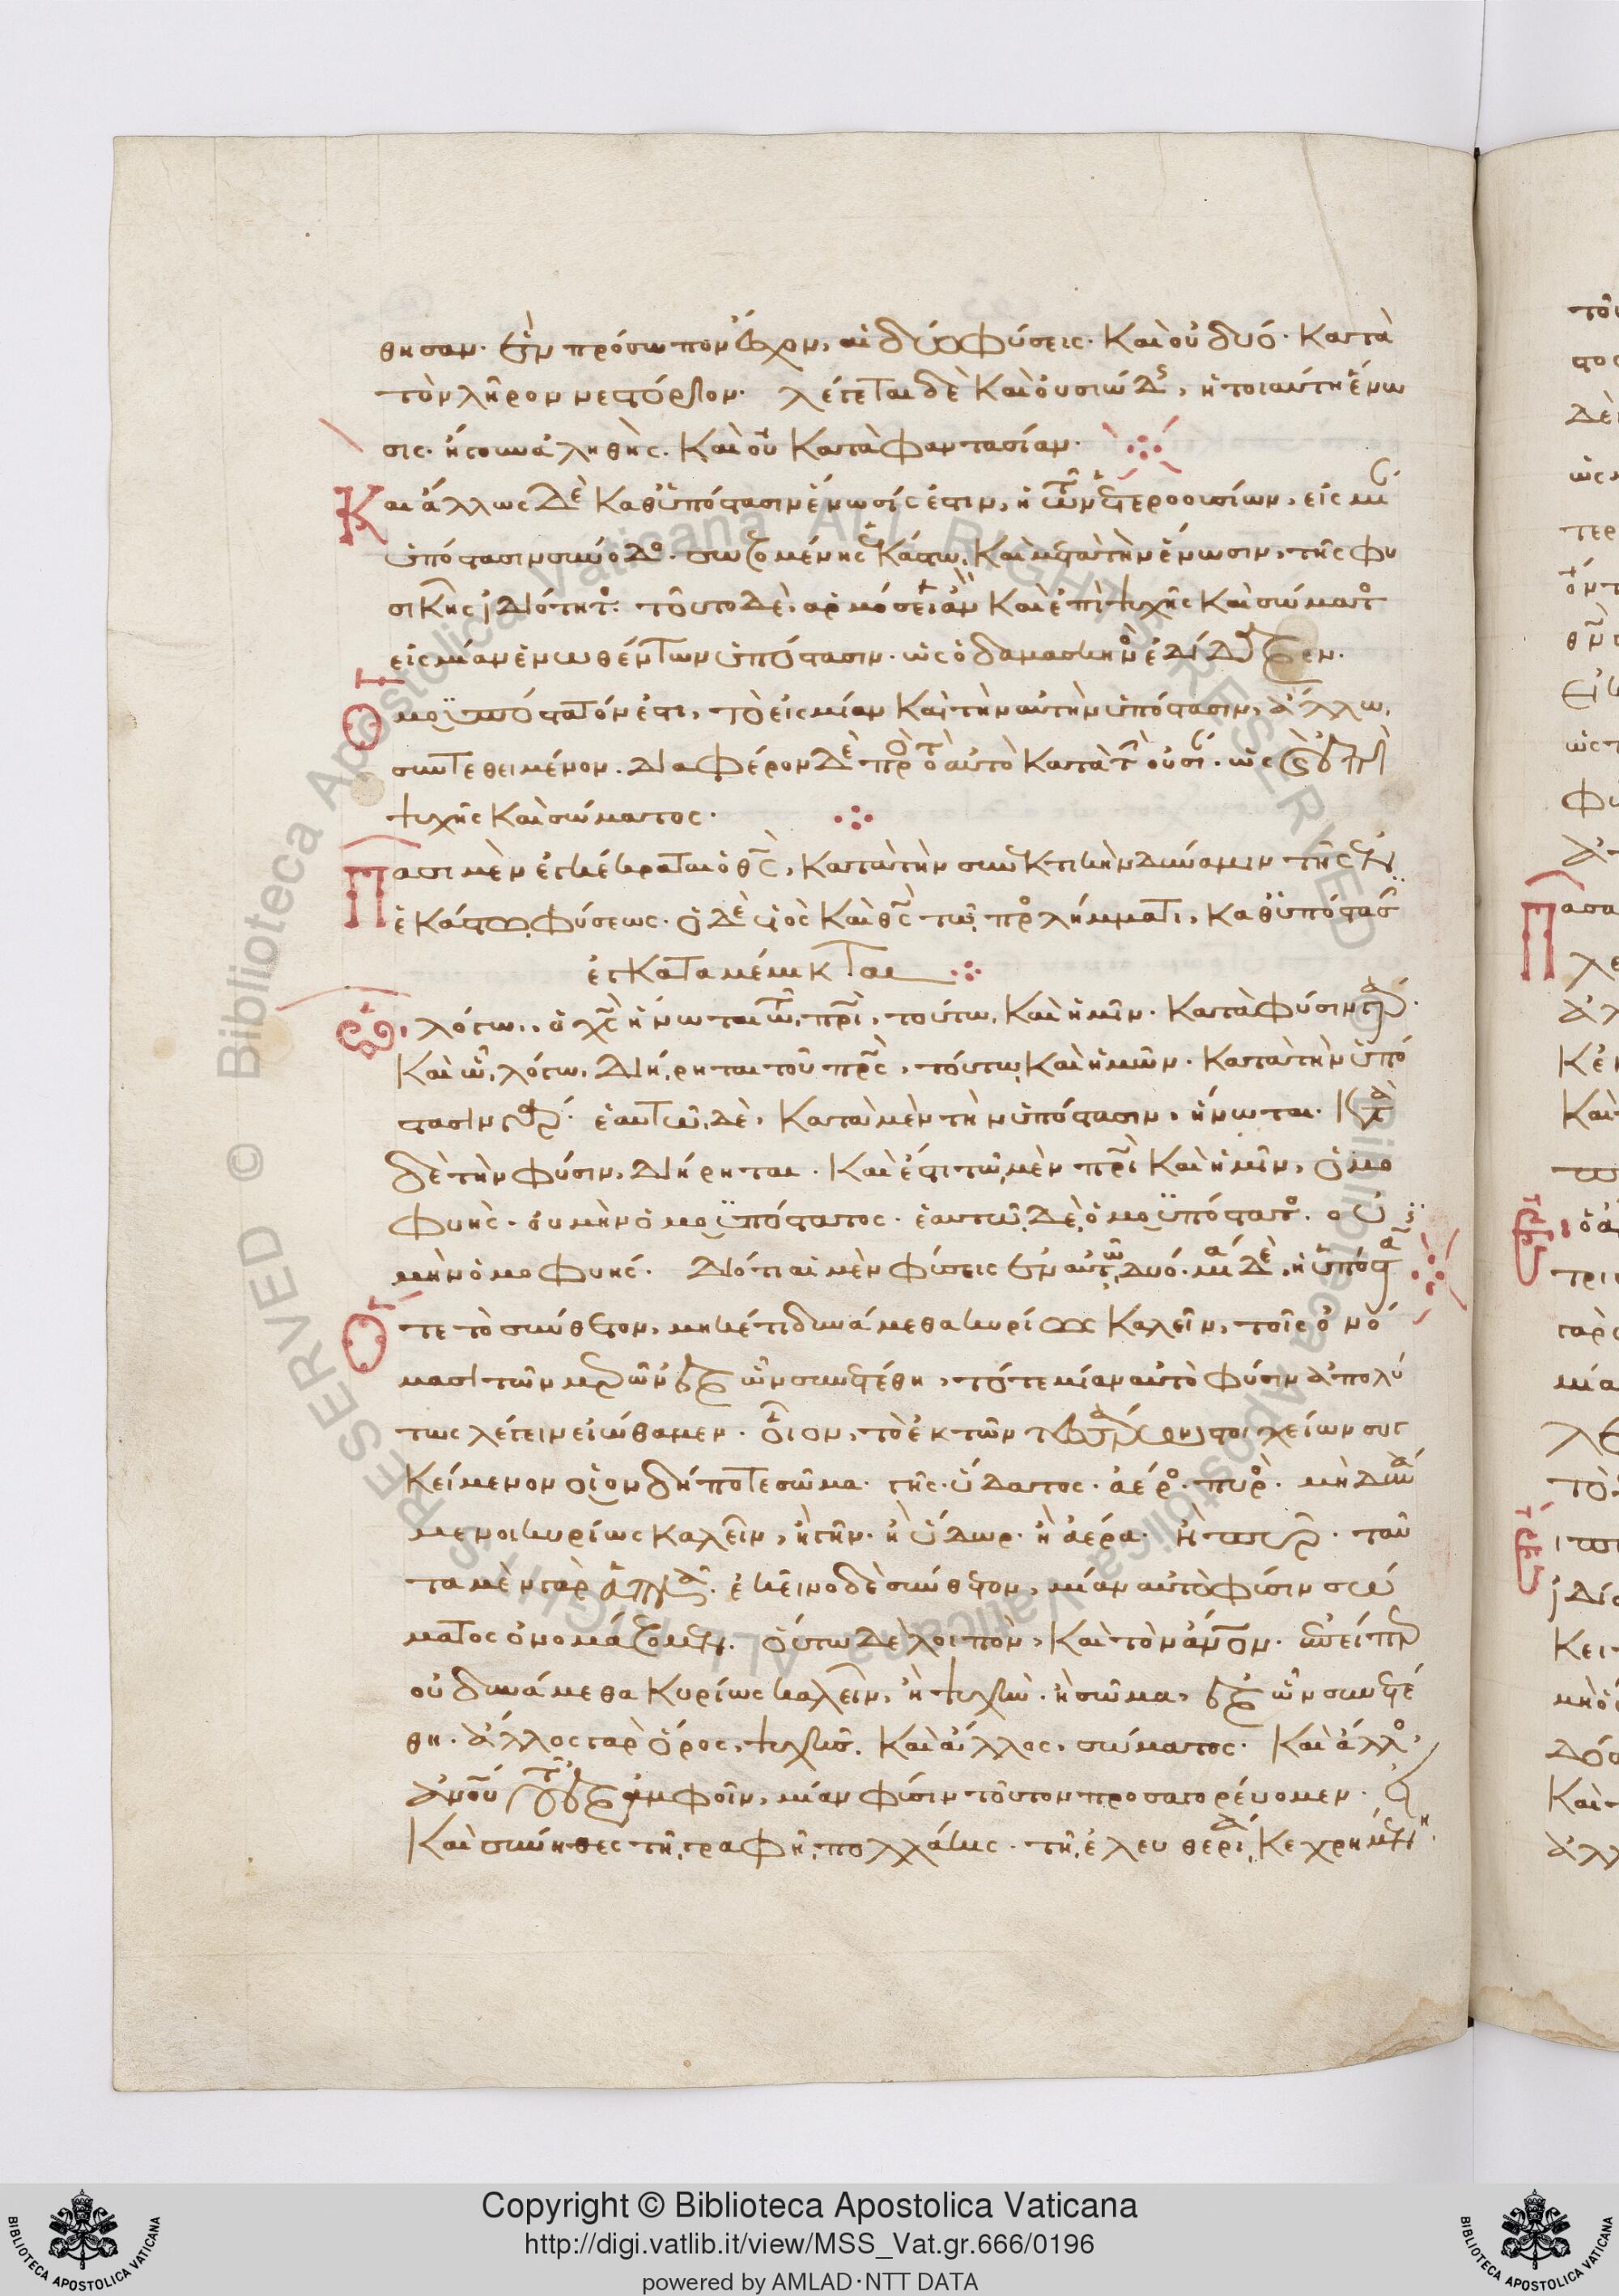 θησαν· ἓν πρόσωπον ἔχον, αἱ δύο φύσεις· καὶ οὐ δυό· κατὰ
τὸν λῆρον νεστόριον· λέγεται δὲ καὶ οὐσιώδης, ἡ τοιαύτη ἕνω
σις· ἤγουν ἀληθὴς· καὶ οὐ κατὰ φαντασίαν·
Και ἄλλως δὲ καθ' ὑπόστασιν ἕνωσίς ἐστιν, ἡ τῶν ἑτεροουσίων, εἰς μίαν
ὑπόστασιν σύνοδος· σωζομένης ἑκάστω, καὶ μετὰ τὴν ἕνωσιν, τῆς φυ
σικῆς ἰδιότητος· τοῦτο δὲ, ἁρμόσει ἂν καὶ ἐπὶ ψυχῆς καὶ σώματος
εἰς μίαν ἑνωθέντων ὑπόστασιν· ὡς ὁ δαμασκηνὸς ἐδίδαξεν·
Ὁμοϋπόστατόν ἐστι, τὸ εἰς μίαν καὶ τὴν αὐτὴν ὑπόστασιν, ἄλλω,
συντεθειμένον· διαφέρον δὲ πρὸς τὸ αὐτὸ κατὰ τὴν οὐσίαν· ὡς ἔχει ἐπὶ
ψυχῆς καὶ σώματος·
Πασι μὲν ἐγκέκραται ὁ θς, κατὰ τὴν συνεκτικὴν δύναμιν τῆς
ἑκάστου φύσεως· ὁ δὲ υἱὸς καὶ θς τῷ προσλήμματι, καθ' ὑπόστασιν
ἐγκαταμέμικται
Ὧ λόγω, ὁ χς ἥνωται τῷ πρι, τούτω, καὶ ἡμῖν· κατὰ φύσιν γάρ·
καὶ ᾧ λόγω, διήρηται τοῦ πρς, τούτω καὶ ἡμῶν· κατὰ τὴν ὑπό
στασιν γάρ· ἑαυτῷ δὲ, κατὰ μὲν τὴν ὑπόστασιν, ἥνωται· κατὰ
δὲ τὴν φύσιν, διήρηται· καὶ ἔστι τῷ μὲν πρι καὶ ἡμῖν, ὁμο
φυής· οὐ μὴν ὁμοϋπόστατος· ἑαυτῷ δὲ, ὁμοϋπόστατος· οὐ
μὴν ὁμοφυής· διότι αἱ μὲν φύσεις ἐν αὐτῷ δυό· μία δὲ, ἡ ὑπόστασις
Ὅτε τὸ σύνθετον, μηκέτι δυνάμεθα κυρίως καλεῖν, τοῖς ὀνό
μασι τῶν μερῶν ἐξ ὧν συνετέθη, τότε μίαν αὐτὸ φύσιν ἀπολύ
τως λέγειν εἰώθαμεν· οἷον, τὸ ἐκ τῶν τεσσάρων στοιχείων συγ
κείμενον οἱονδήποτε σῶμα· γῆς· ὕδατος· ἀέρος· πυρὸς· μὴ δυνά
μενοι κυρίως καλεῖν, ἢ γῆν· ἢ ὕδωρ· ἢ ἀέρα· ἢ πῦρ· ταῦ
τα μὲν γὰρ ἁπλᾶ· ἐκεῖνο δὲ σύνθετον, μίαν αὐτὸ φύσιν σώ
ματος ὀνομάζομεν· οὕτω δὲ λοιπὸν, καὶ τὸν ἄνον· ἐπείπερ
οὐ δυνάμεθα κυρίως καλεῖν, ἢ ψυχὴν· ἢ σῶμα, ἐξ ὧν συνετέ
θη· ἄλλος γὰρ ὅρος, ψυχῆς· καὶ ἄλλος, σώματος· καὶ ἄλλος,
ἀνου τοῦ ἐξ ἀμφοῖν, μίαν φύσιν τοῦτον προσαγορεύομεν·
καὶ σύνηθες τῇ γραφῇ, πολλάκις· τῇ ἐλευθερίᾳ κεχρημένη·